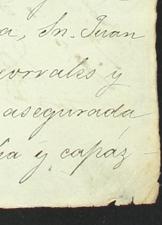 a, Sn. Juan
corrales y
asegurada
ha y capáz